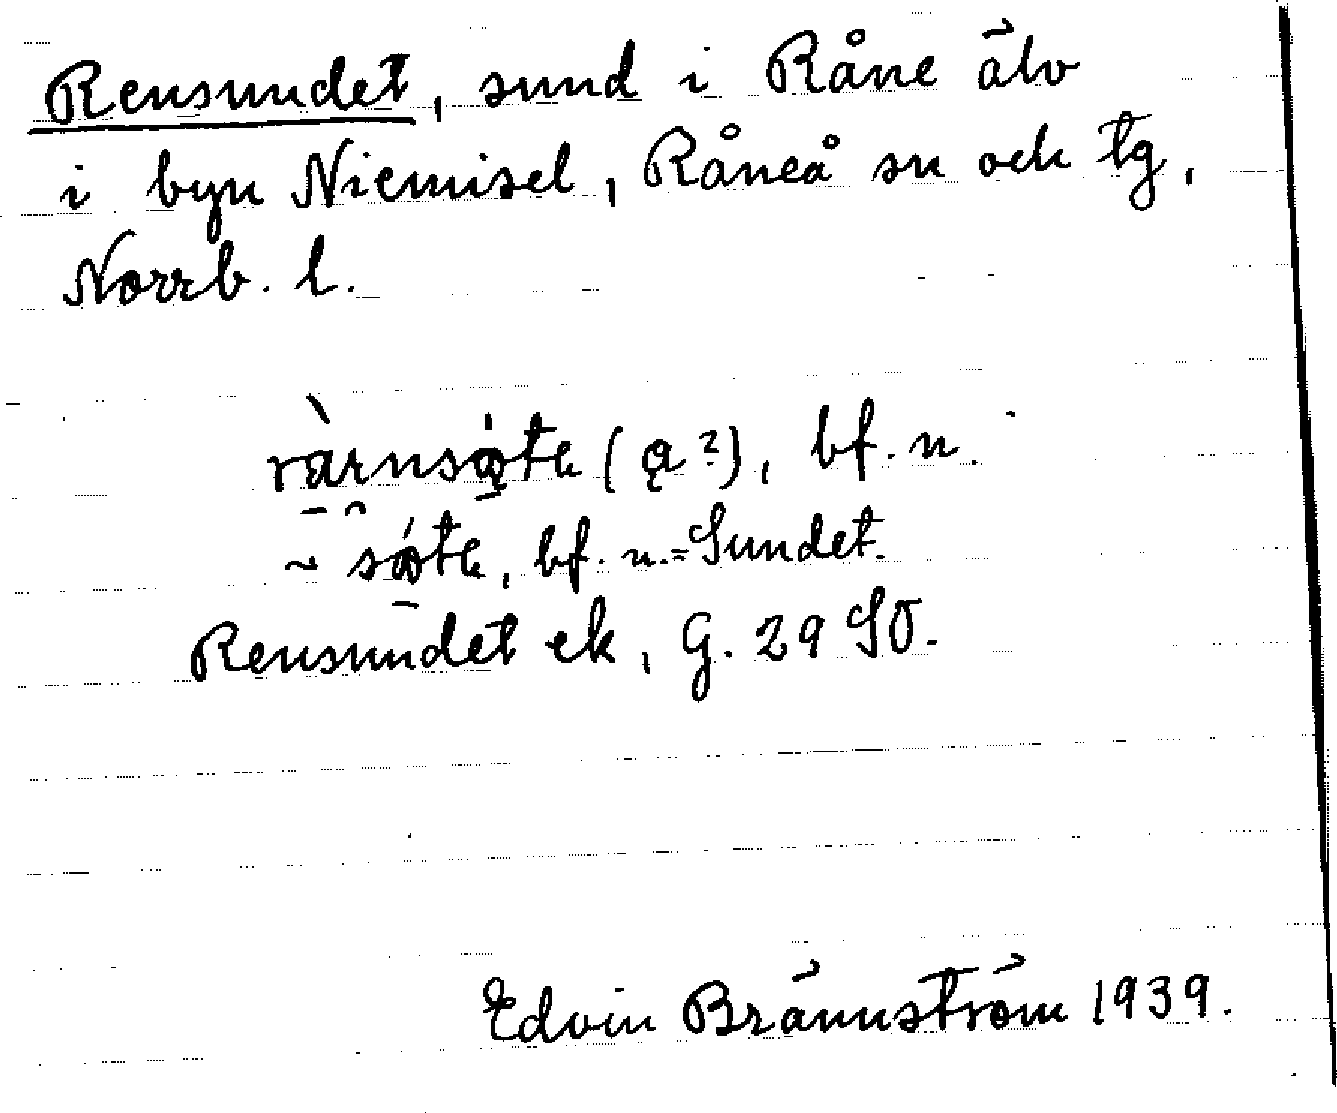 Rensundet, sund i Råne älv
i byn Niemisel, Råneå sn och tg,
Norrb. l.
bf. n.
bf. n. = Sundet.
Rensundet ek, G. 29 SO.
Edvin Brännström 1939.